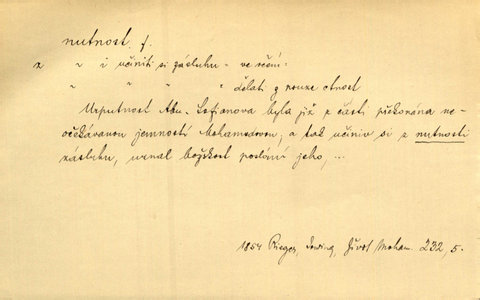 nutnost, f.
z " i učiniti si zásluhu - ve rčení:
" " " dělati z nouze ctnost
Urputnost Abu-Sofianova byla již z části překonána ne-
očekávanou jemností Mohamedovou, a tak učiniv si z nutnosti
zásluhu, uznal božskost poslání jeho, ...
1854 Rieger, Irwing, Život Moham. 232, 5.